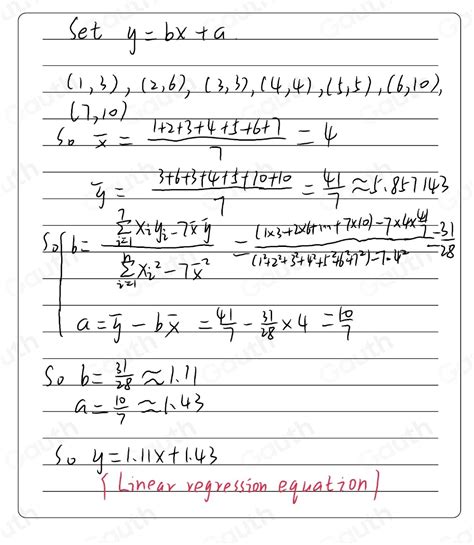 Set y = bx + a
(1,3), (2,6), (3,3), (4,4), (5,5), (6,10),
(7,10)
So x̄ = (1+2+3+4+5+6+7)/7 = 4
ȳ = (3+6+3+4+5+10+10)/7 = 41/7 ≈ 5.857143
So { b = (∑_{i=1}^{7} x_i y_i - 7 x̄ ȳ)/(∑_{i=1} x_i² - 7 x̄²) = ((1×3+2×6+...+7×10) - 7×4×41/7)/((1²+2²+3²+4²+5²+6²+7²) - 7·4²) = 31/28
a = ȳ - b x̄ = 41/7 - 31/28 × 4 = 10/7
So b = 31/28 ≈ 1.11
a = 10/7 ≈ 1.43
So y = 1.11x + 1.43
( Linear regression equation )
Gauth